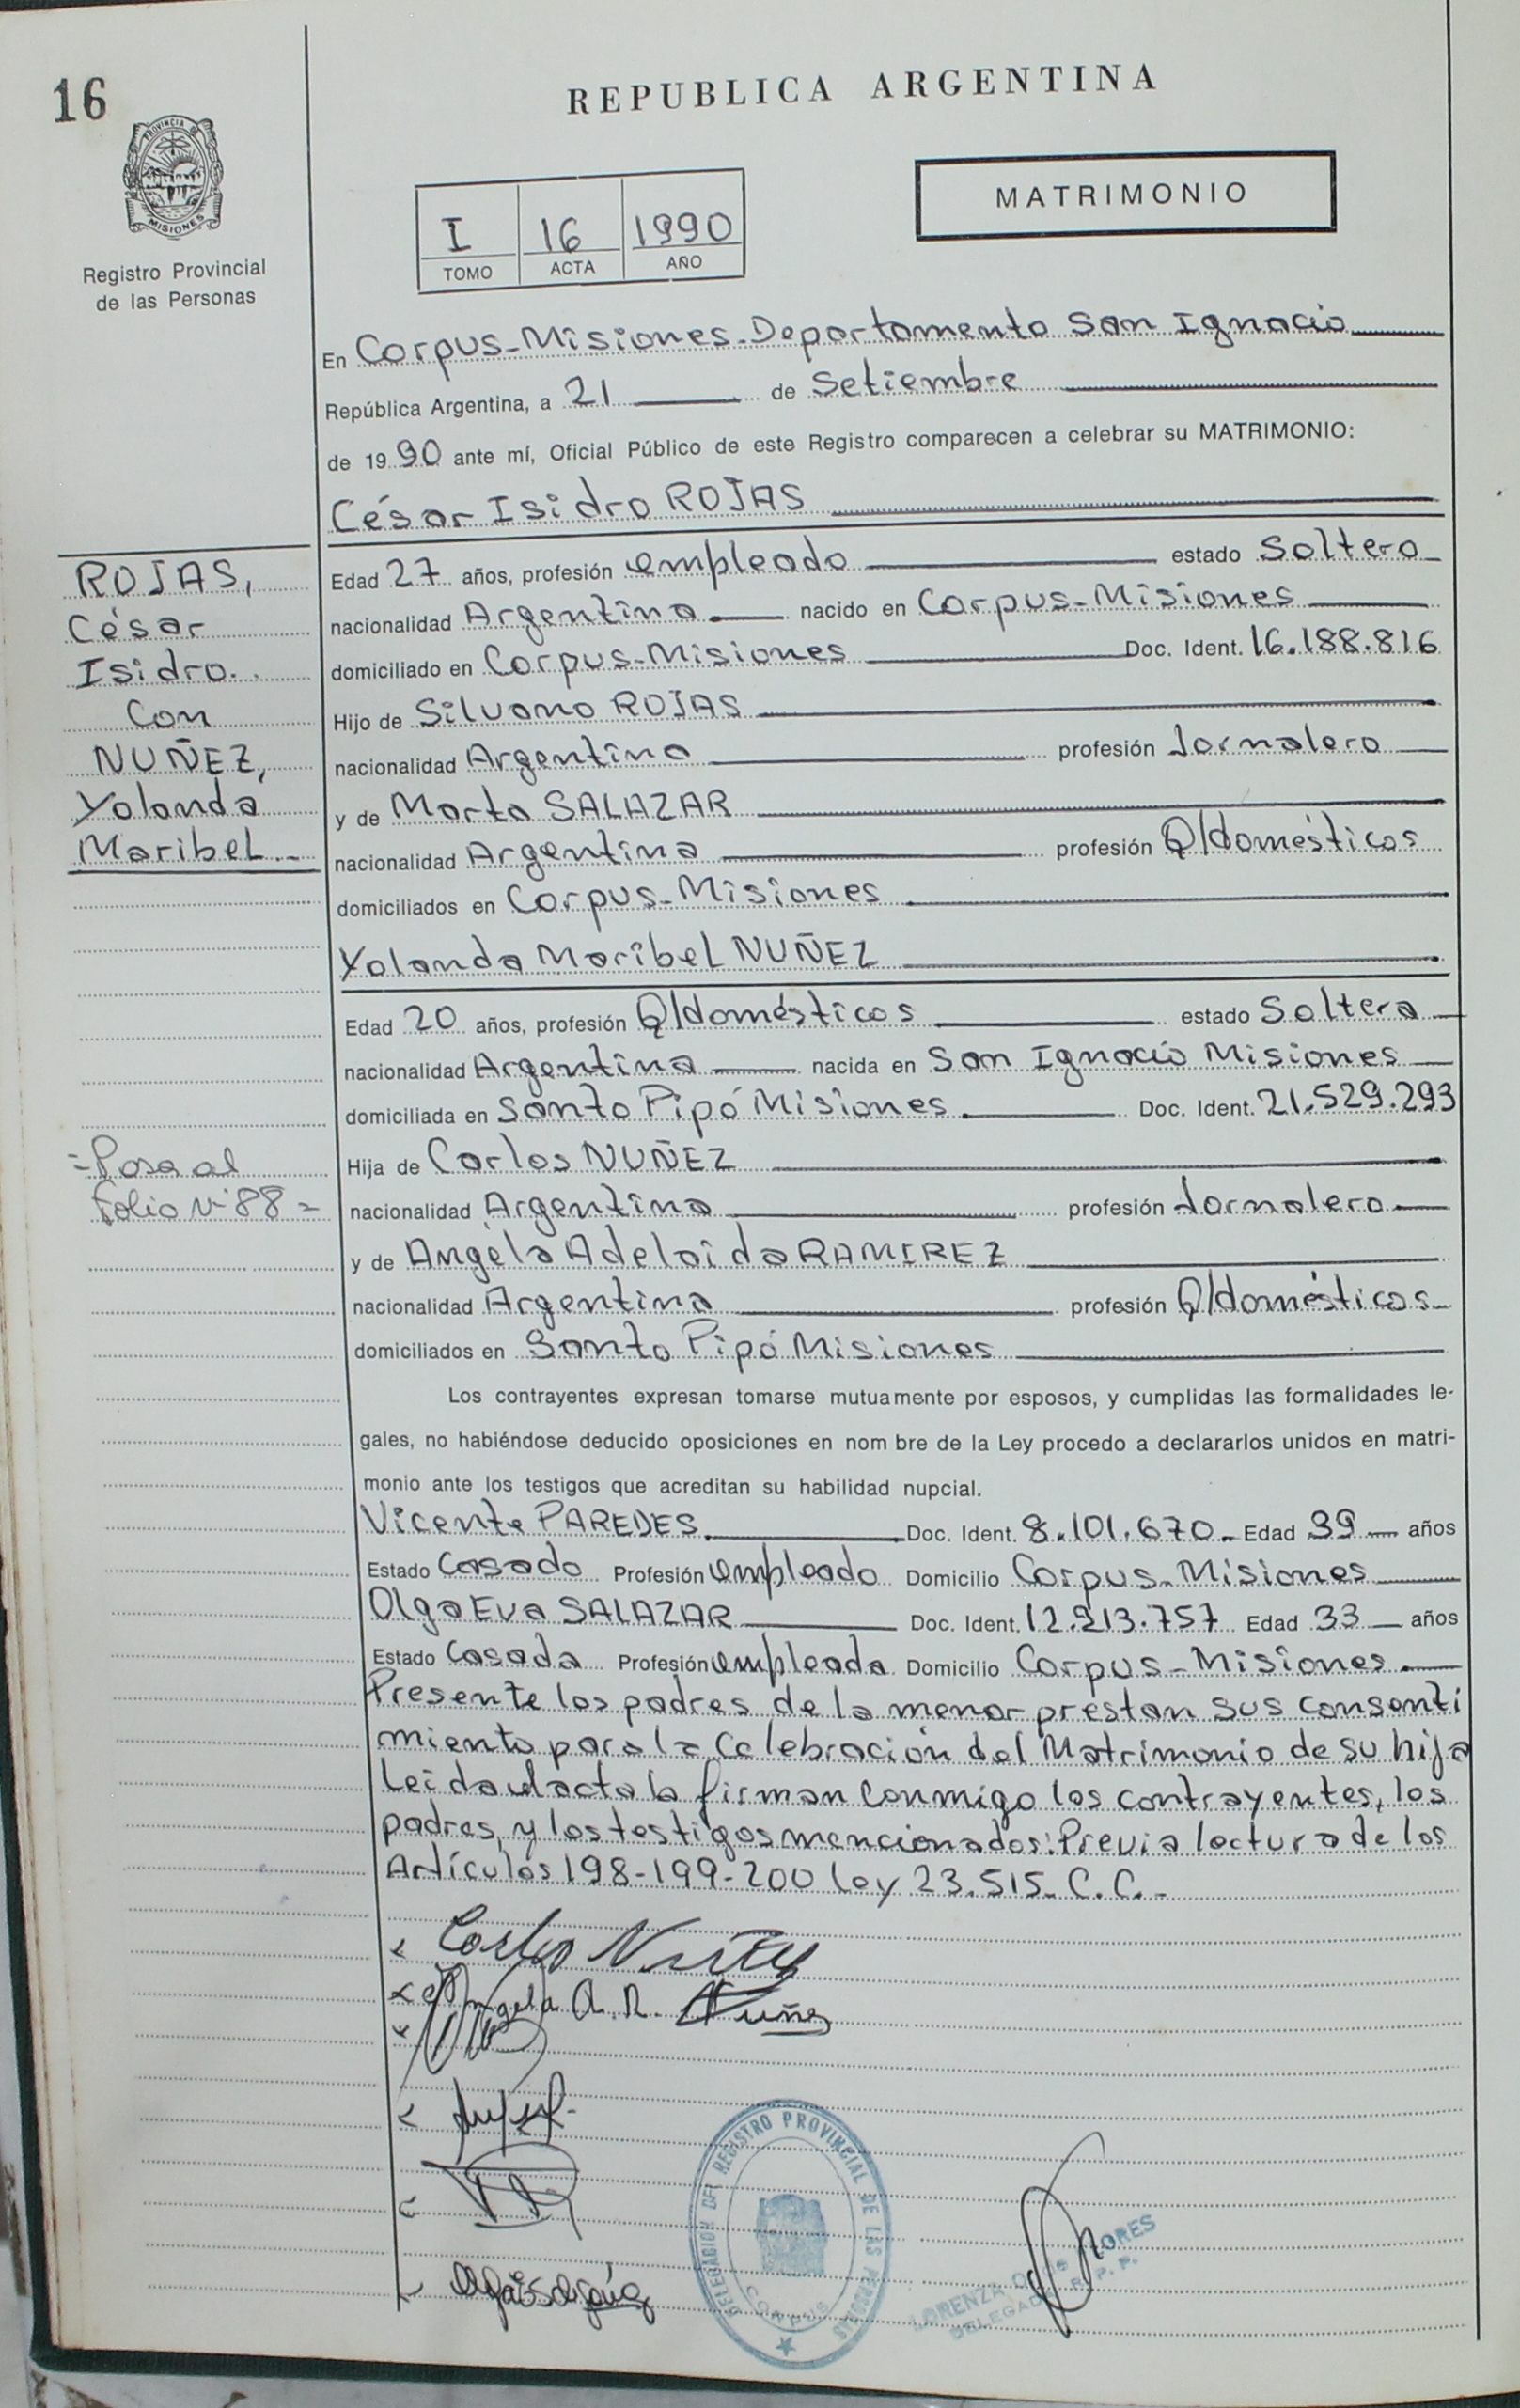 16
REPUBLICA ARGENTINA
PROVINCIA DE
MISIONES
Registro Provincial
de las Personas
MATRIMONIO
I 16 1990
TOMO ACTA AÑO
En Corpus-Misiones-Departamento San Ignacio
República Argentina, a 21 de Setiembre
de 1990 ante mí, Oficial Público de este Registro comparecen a celebrar su MATRIMONIO:
César Isidro ROJAS
ROJAS,
César
Isidro.
Con
NUÑEZ,
Yolanda
Maribel
Edad 27 años, profesión empleado estado Soltero
nacionalidad Argentina nacido en Corpus-Misiones
domiciliado en Corpus-Misiones Doc. Ident. 16.188.816
Hijo de Silvano ROJAS
nacionalidad Argentina profesión Jornalero
y de Marta SALAZAR
nacionalidad Argentina profesión Q/domésticos
domiciliados en Corpus-Misiones
Yolanda Maribel NUÑEZ
Edad 20 años, profesión Q/domésticos estado Soltera
nacionalidad Argentina nacida en San Ignacio Misiones
domiciliada en Santo Pipó Misiones Doc. Ident. 21.529.293
-Pasa al
Folio Nº 88-
Hija de Carlos NUÑEZ
nacionalidad Argentina profesión Jornalero
y de Angela Adelaida RAMIREZ
nacionalidad Argentina profesión Q/domésticos
domiciliados en Santo Pipó Misiones
Los contrayentes expresan tomarse mutuamente por esposos, y cumplidas las formalidades le-
gales, no habiéndose deducido oposiciones en nom bre de la Ley procedo a declararlos unidos en matri-
monio ante los testigos que acreditan su habilidad nupcial.
Vicente PAREDES Doc. Ident. 8.101.670 Edad 39 años
Estado Casado Profesión empleado Domicilio Corpus-Misiones
Olga Eva SALAZAR Doc. Ident. 12.213.757 Edad 33 años
Estado Casada Profesión empleada Domicilio Corpus-Misiones
Presente los padres de la menor prestan sus consenti
miento para la Celebración del Matrimonio de su hija
Leída el acta la firman conmigo los contrayentes, los
padres, y los testigos mencionados: Previa lectura de los
Artículos 198-199-200 Ley 23.515- C.C.-
Carlos Nuñez
Angela A. R. Nuñez
DELEGACION DEL REGISTRO PROVINCIAL DE LAS PERSONAS
CORPUS
LORENZA
DELEGADA R. P. P.